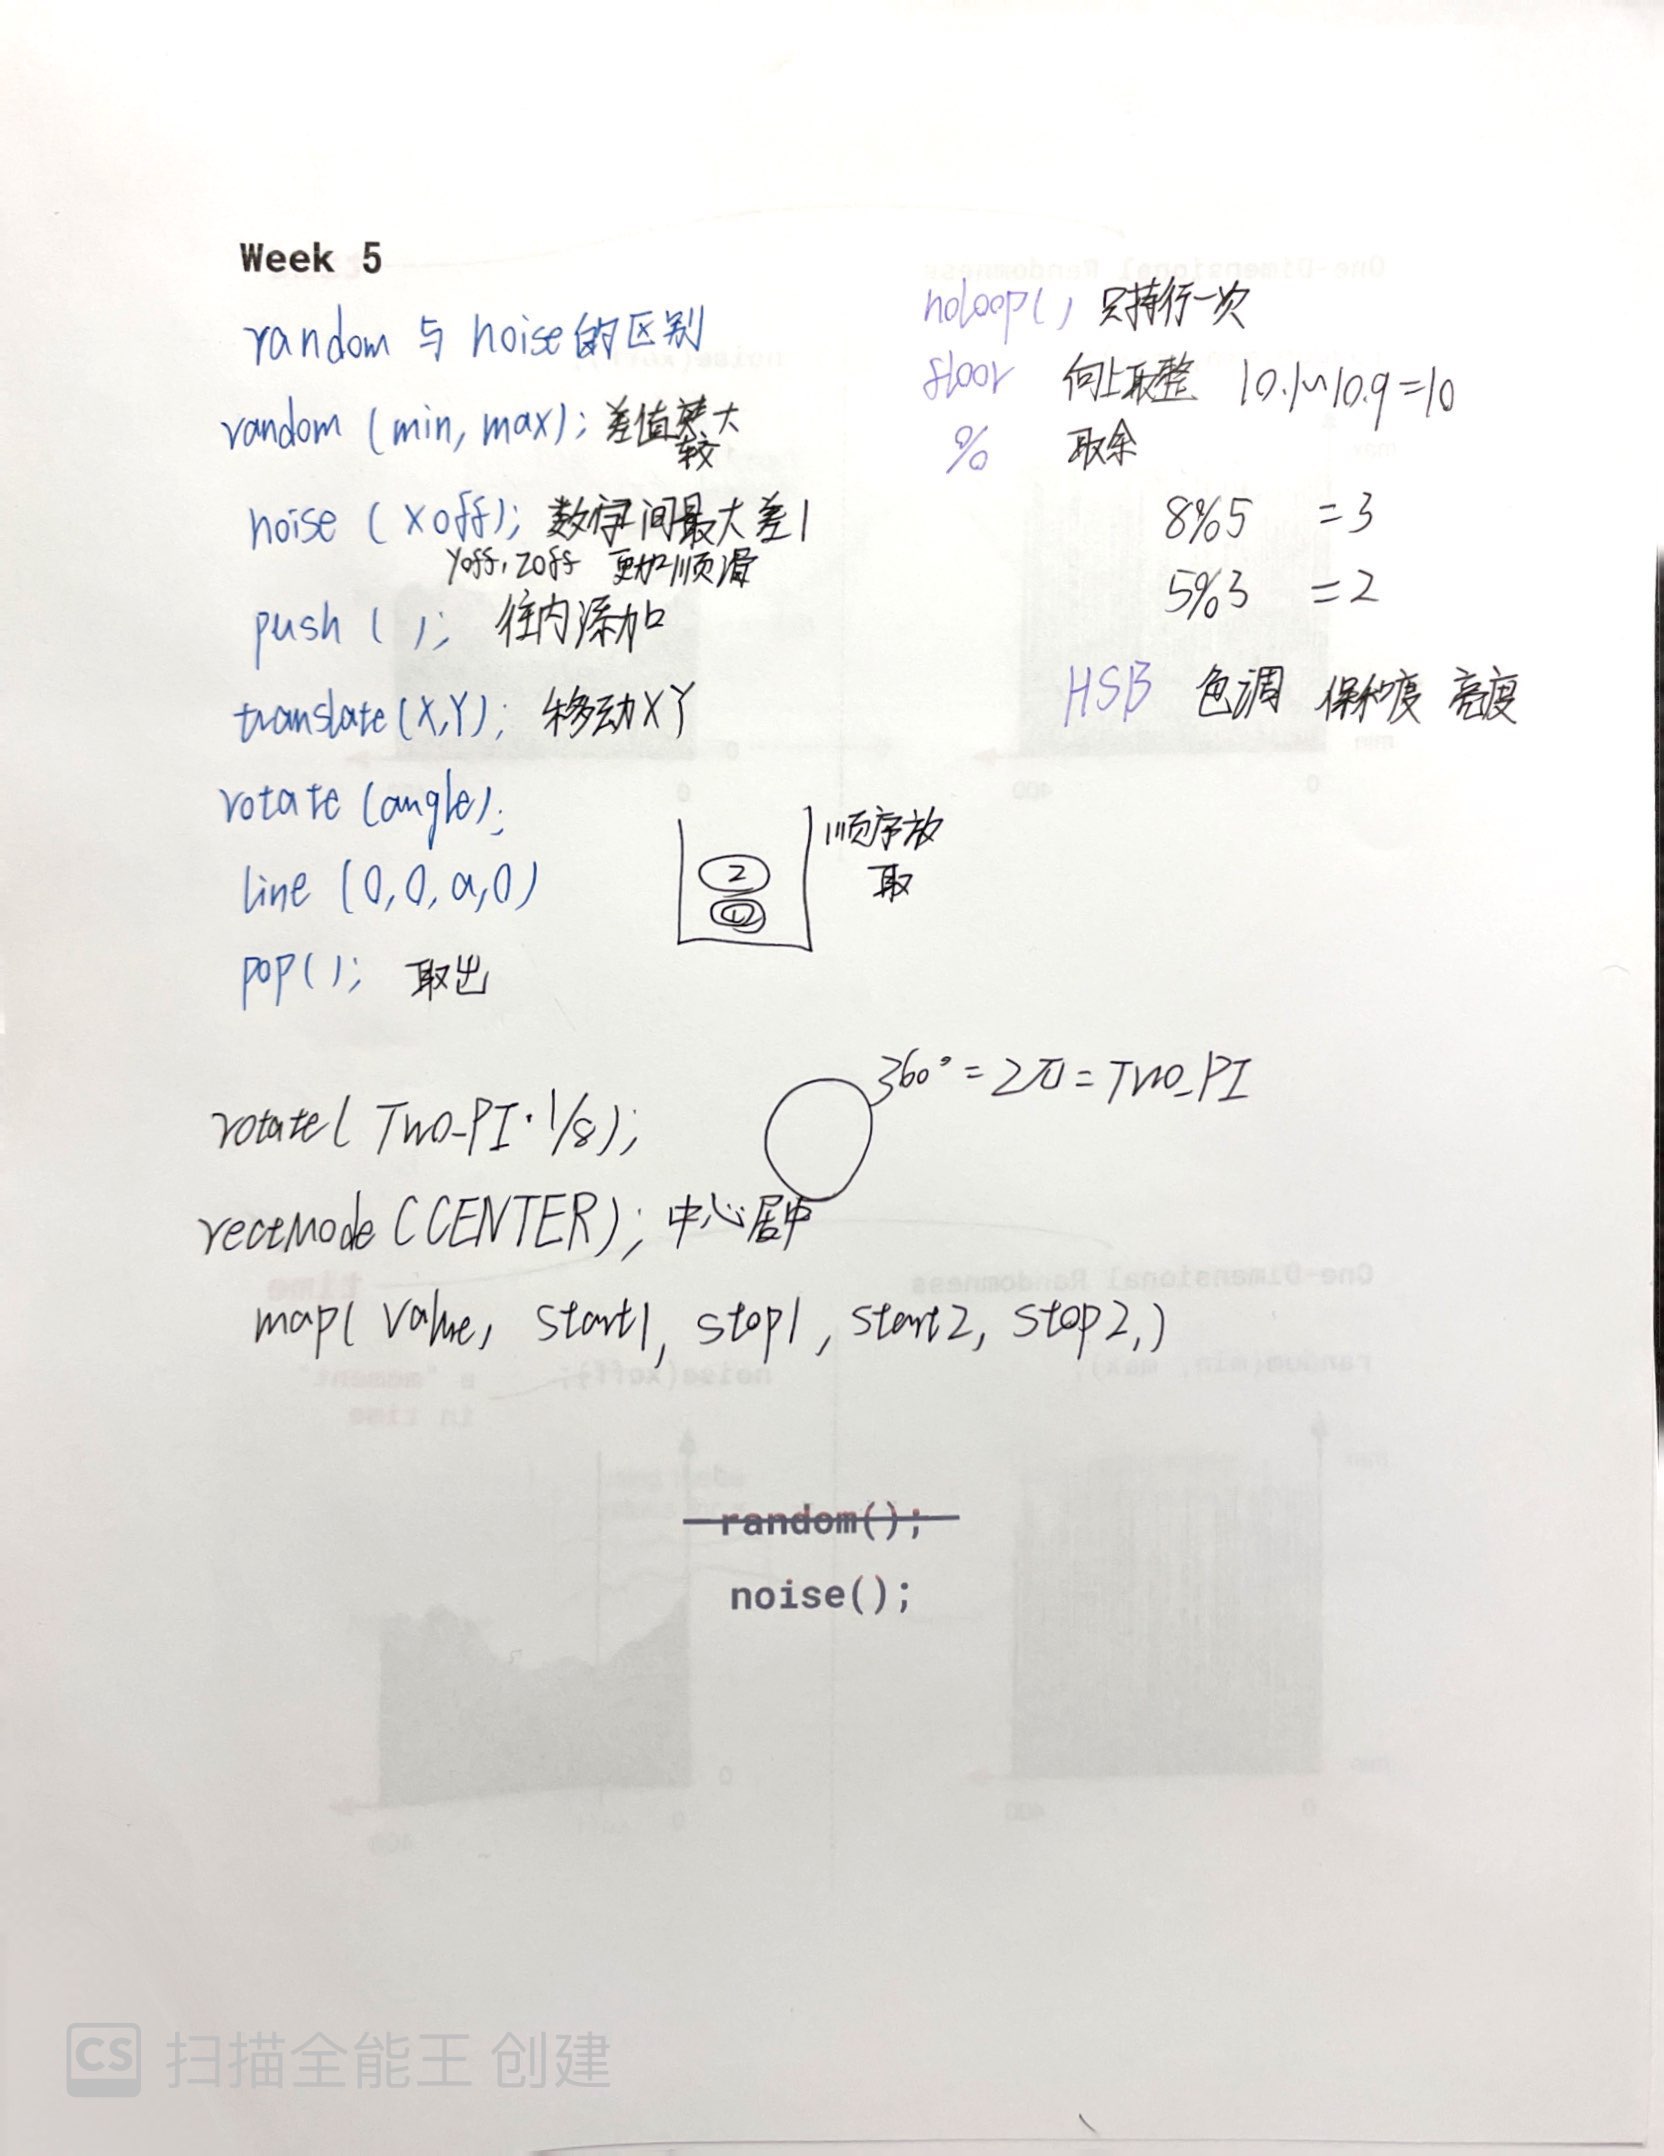 Week 5
random 与 noise 的区别
random (min, max); 差值较大
noise (xoff); 数字间最大差1
yoff, zoff 更加顺滑
push ( ); 往内添加
translate (X,Y); 移动XY
rotate (angle);
line (0,0,a,0)
pop( ); 取出
noloop( ) 只持行一次
floor 向上取整 10.1~10.9=10
% 取余
8%5 =3
5%3 =2
HSB 色调 保和度 亮度
2
顺序放
取
360° = 2π = Two_PI
rotate( Two_PI·1/8);
rectMode (CENTER); 中心居中
map( value, start1, stop1, start2, stop2,)
random();
noise();
CS 扫描全能王 创建